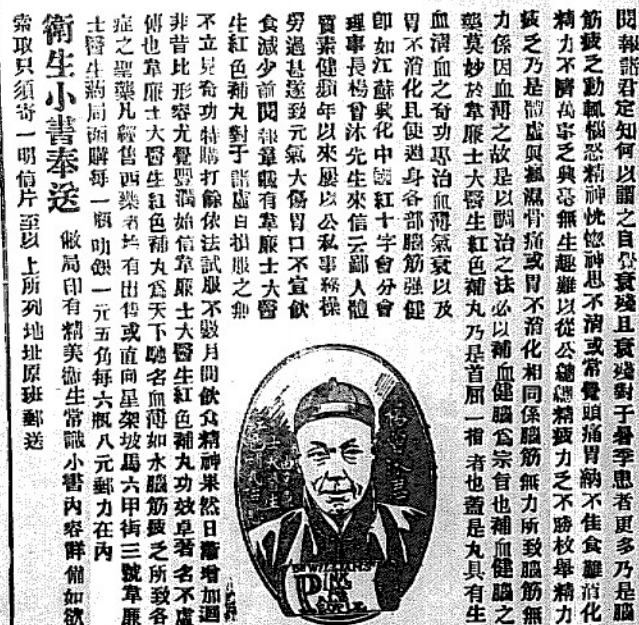 閱報諸君定知何以謂之自覺衰殘且衰殘對于暑季患者更多乃是腦
筋疲乏動輒惱怒精神恍惚神思不清或常覺頭痛胃納不佳食難消化
精力不濟萬事乏興毫無生趣難以從公總總精疲力乏不勝枚舉精力
疲乏乃是體虛與風濕骨痛或胃不消化相同係腦筋無力所致腦筋無
力係因血薄之故是以調治之法必以補血健腦為宗旨也補血健腦之
藥莫妙於韋廉士大醫生紅色補丸乃是首屈一指者也蓋是丸具有生
血清血之奇功專治血薄氣衰以及
胃不消化且使遍身各部腦筋强健
卽如江蘇興化中國紅十字會分會
理事長楊曾沐先生來信云鄙人體
質素健頻年以來屢以公私事務操
勞過甚遂致元氣大傷胃口不宣飲
食減少前閱報章載有韋廉士大醫
生紅色補丸對于諸虛百損服之無
不立見奇功特購打餘依法試服不數月間飲食精神果然日漸增加迴
非昔比形容尤覺豐潤始信韋廉士大醫生紅色補丸功效卓著名不虛
傳也韋廉士大醫生紅色補丸為天下馳名血薄如水腦筋疲乏所致各
症之聖藥凡經售西藥者均有出售或直向星架坡馬六甲街三號韋廉
士醫生藥局函購每一瓶叻銀一元五角每六瓶八元郵力在內
衛生小書奉送
敝局印有精美衛生常識小書內容詳備如欲
索取只須寄一明信片至以上所列地址原班郵送
DR WILLIAMS'
PINK
PILLS
PEOPLE